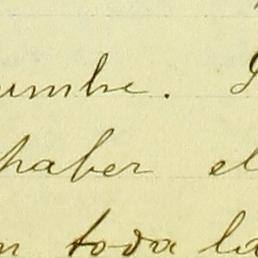 umbre.
haber el
en toda la